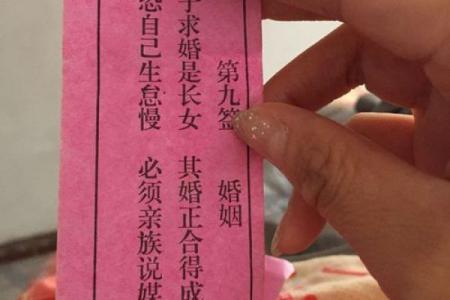 第九签 婚姻
求婚是长女 其婚正合得成
怨自己生怠慢 必须亲族说媒